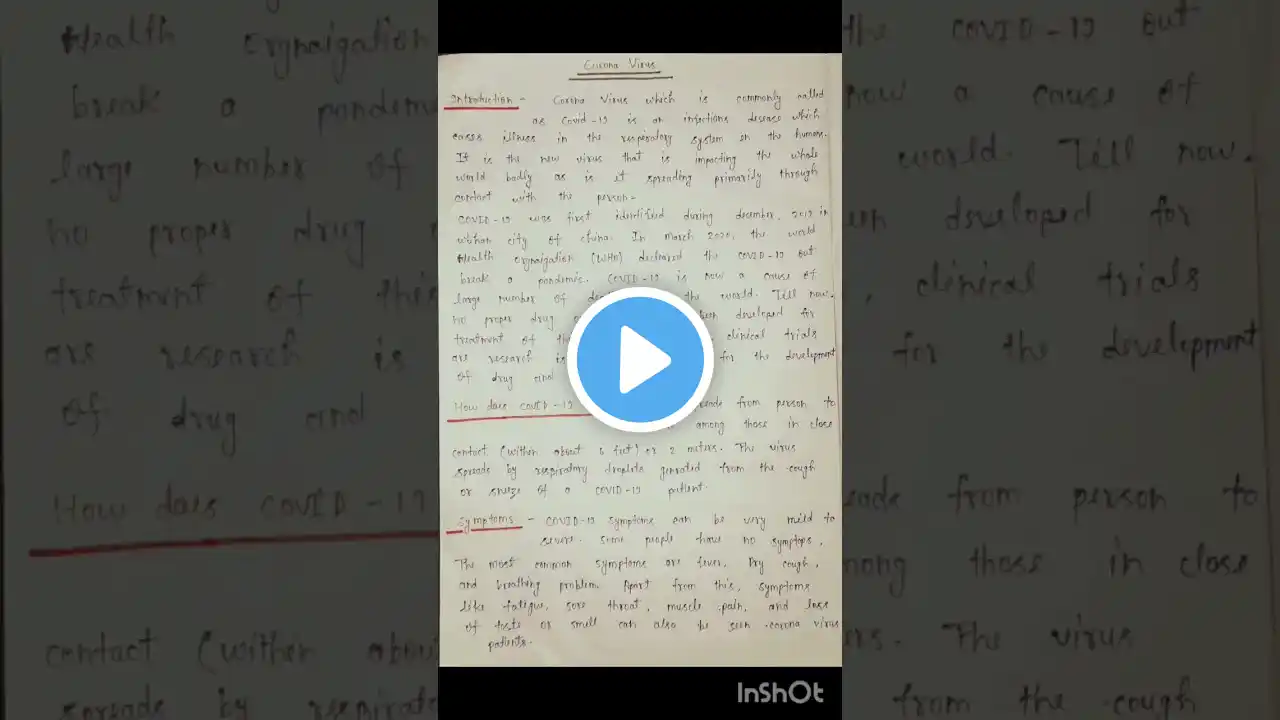 Corona Virus
Introduction - Corona Virus which is commonly called
as Covid-19 is an infections desease which
cases illness in the respiratory system in the humans.
It is the new virus that is impacting the whole
world badly as is it spreading primarily through
contact with the person-
COVID-19 was first identified during december, 2019 in
wuhan city of china. In march 2020, the world
Health orgnaigation (WHO) decleared the COVID-19 out
break a pandemic. COVID-19 is now a cause of
large number of the world. Till now,
no proper drug developed for
treatment of clinical trials
are research is for the development
of drug and
How does COVID-19 from person to
among those in close
contact (within about 6 feet) or 2 meters. The virus
spreads by respiratory droplets genrated from the cough
or sneeze of a COVID-19 patient.
Symptoms - COVID-19 symptoms can be very mild to
severe. some people have no symptops.
The most common symptoms are fever, Dry cough,
and breathing problem. Apart from this, symptoms
like fatigue, sore throat, muscle pain, and loss
of taste or smell can also be seen corona virus
patients.
InShOt